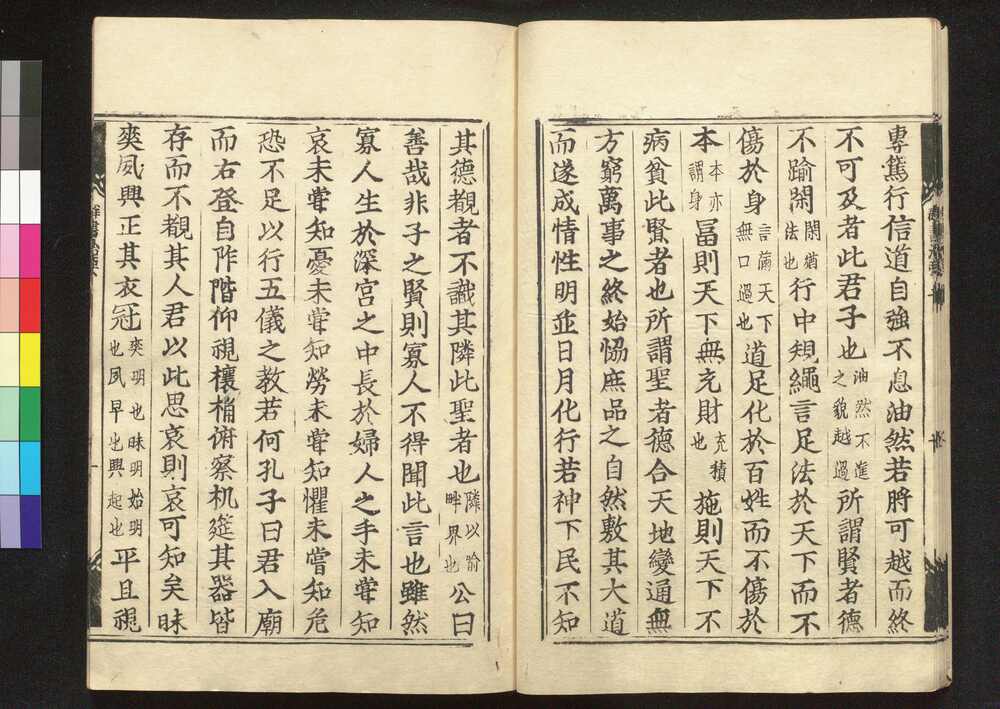 專篤行信道自強不息油然若將可越而終
不可及者此君子也油然不進之貌越過所謂賢者德
不踰閑閑猶法也行中規繩言足法於天下而不
傷於身言滿天下無口過也道足化於百姓而不傷於
本本亦謂身冨則天下無宛財宛積也施則天下不
病貧此賢者也所謂聖者德合天地變通無
方窮萬事之終始恊庶品之自然敷其大道
而遂成情性明並日月化行若神下民不知
其德覩者不識其隣此聖者也隣以喻畔界也公曰
善哉非子之賢則寡人不得聞此言也雖然
寡人生於深宮之中長於婦人之手未甞知
哀未甞知憂未甞知勞未甞知懼未嘗知危
恐不足以行五儀之教若何孔子曰君入廟
而右登自阼階仰視榱桷俯察机筵其器皆
存而不覩其人君以此思哀則哀可知矣昧
爽夙興正其衣冠爽明也昧明始明也夙早也興起也平旦視